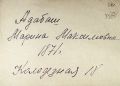 Адабаш
Марина Максимовна
1871.
Колодезная 18